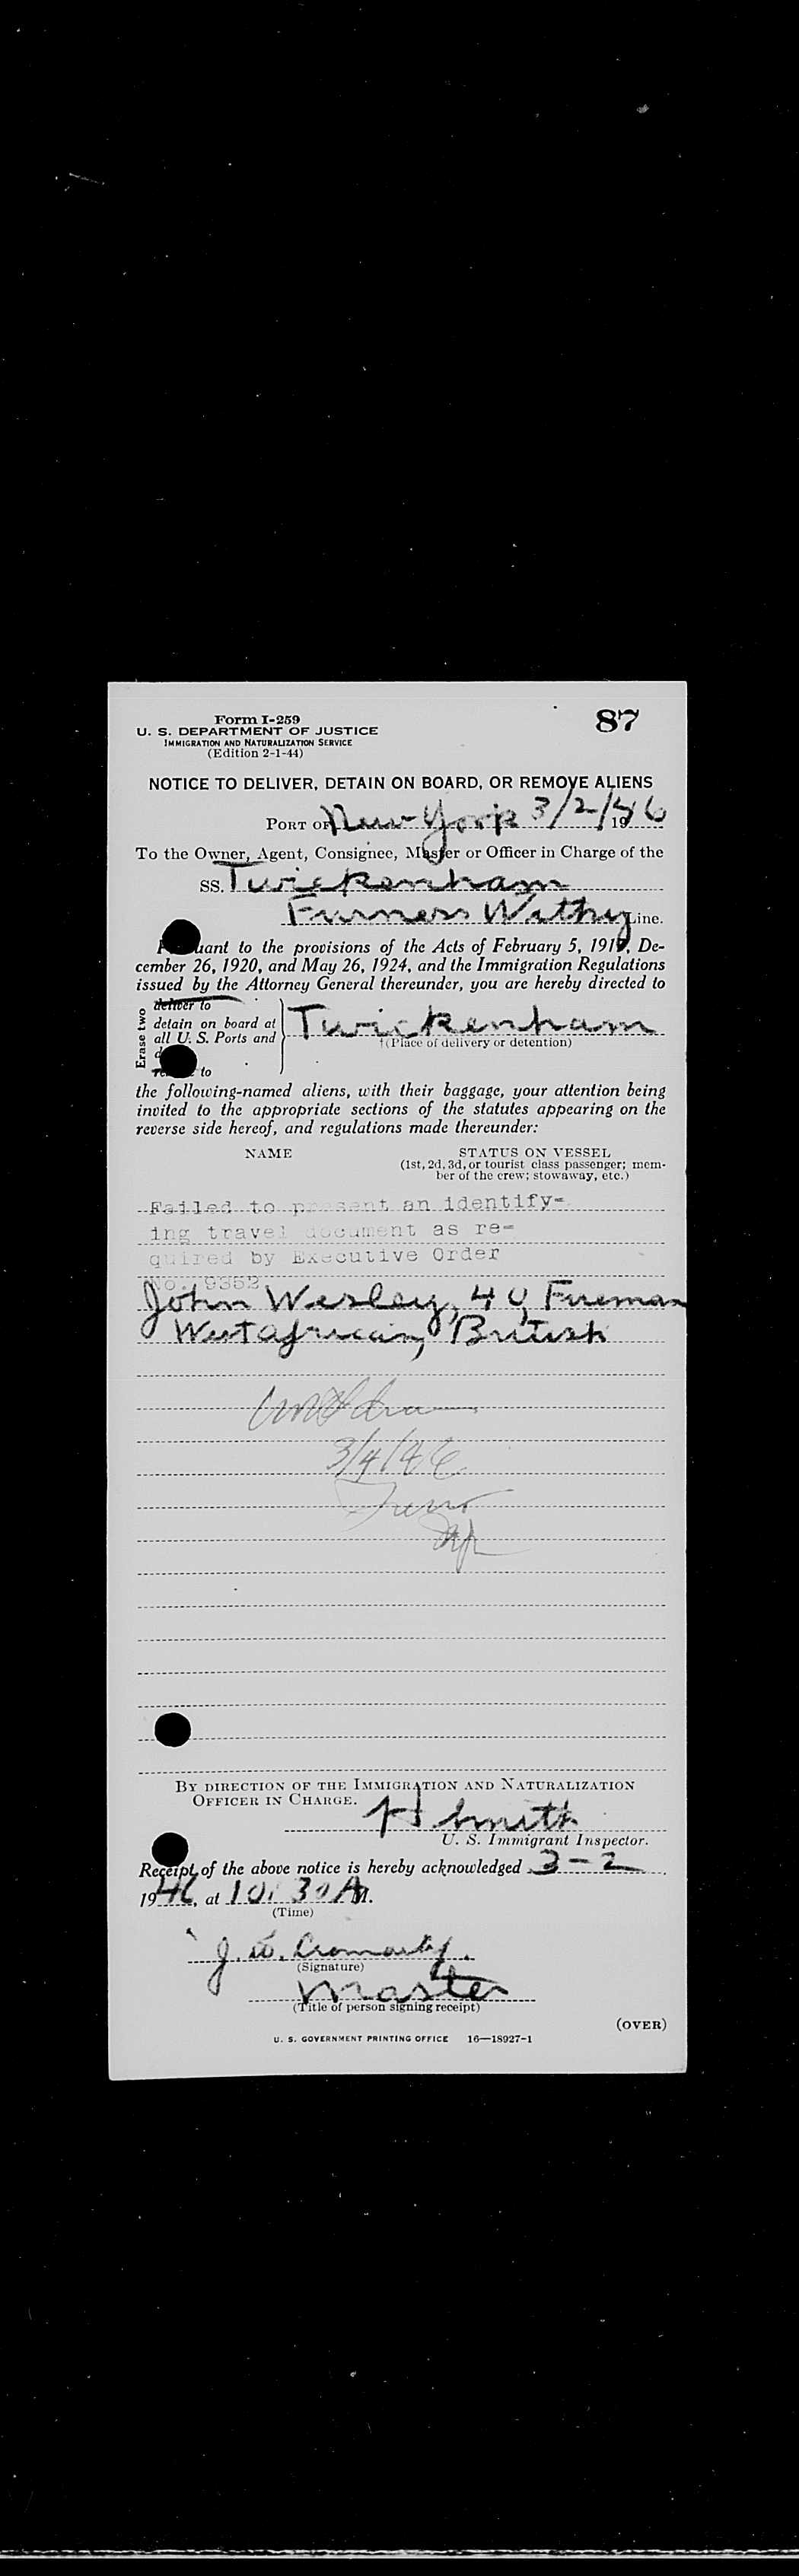 Form I-259
U. S. DEPARTMENT OF JUSTICE
IMMIGRATION AND NATURALIZATION SERVICE
(Edition 2-1-44)
87
NOTICE TO DELIVER, DETAIN ON BOARD, OR REMOVE ALIENS
PORT OF New York 3/2/1946
To the Owner, Agent, Consignee, Master or Officer in Charge of the
SS. Twickenham
Furness Withy Line.
Pursuant to the provisions of the Acts of February 5, 1917, De-
cember 26, 1920, and May 26, 1924, and the Immigration Regulations
issued by the Attorney General thereunder, you are hereby directed to
Erase two
deliver to
detain on board at
all U. S. Ports and
to
Twickenham
†(Place of delivery or detention)
the following-named aliens, with their baggage, your attention being
invited to the appropriate sections of the statutes appearing on the
reverse side hereof, and regulations made thereunder:
NAME
STATUS ON VESSEL
(1st, 2d, 3d, or tourist class passenger; mem-
ber of the crew; stowaway, etc.)
Failed to present an identify-
ing travel document as re-
quired by Executive Order
No. 9352.
John Wesley, 40, Fireman
West African, British
3/4/46
BY DIRECTION OF THE IMMIGRATION AND NATURALIZATION
OFFICER IN CHARGE.
H Smith
U. S. Immigrant Inspector.
Receipt of the above notice is hereby acknowledged 3-2
1946, at 10:30 A M.
(Time)
J. W. Cromarty.
(Signature)
Master
(Title of person signing receipt)
(OVER)
U. S. GOVERNMENT PRINTING OFFICE 16—18927-1